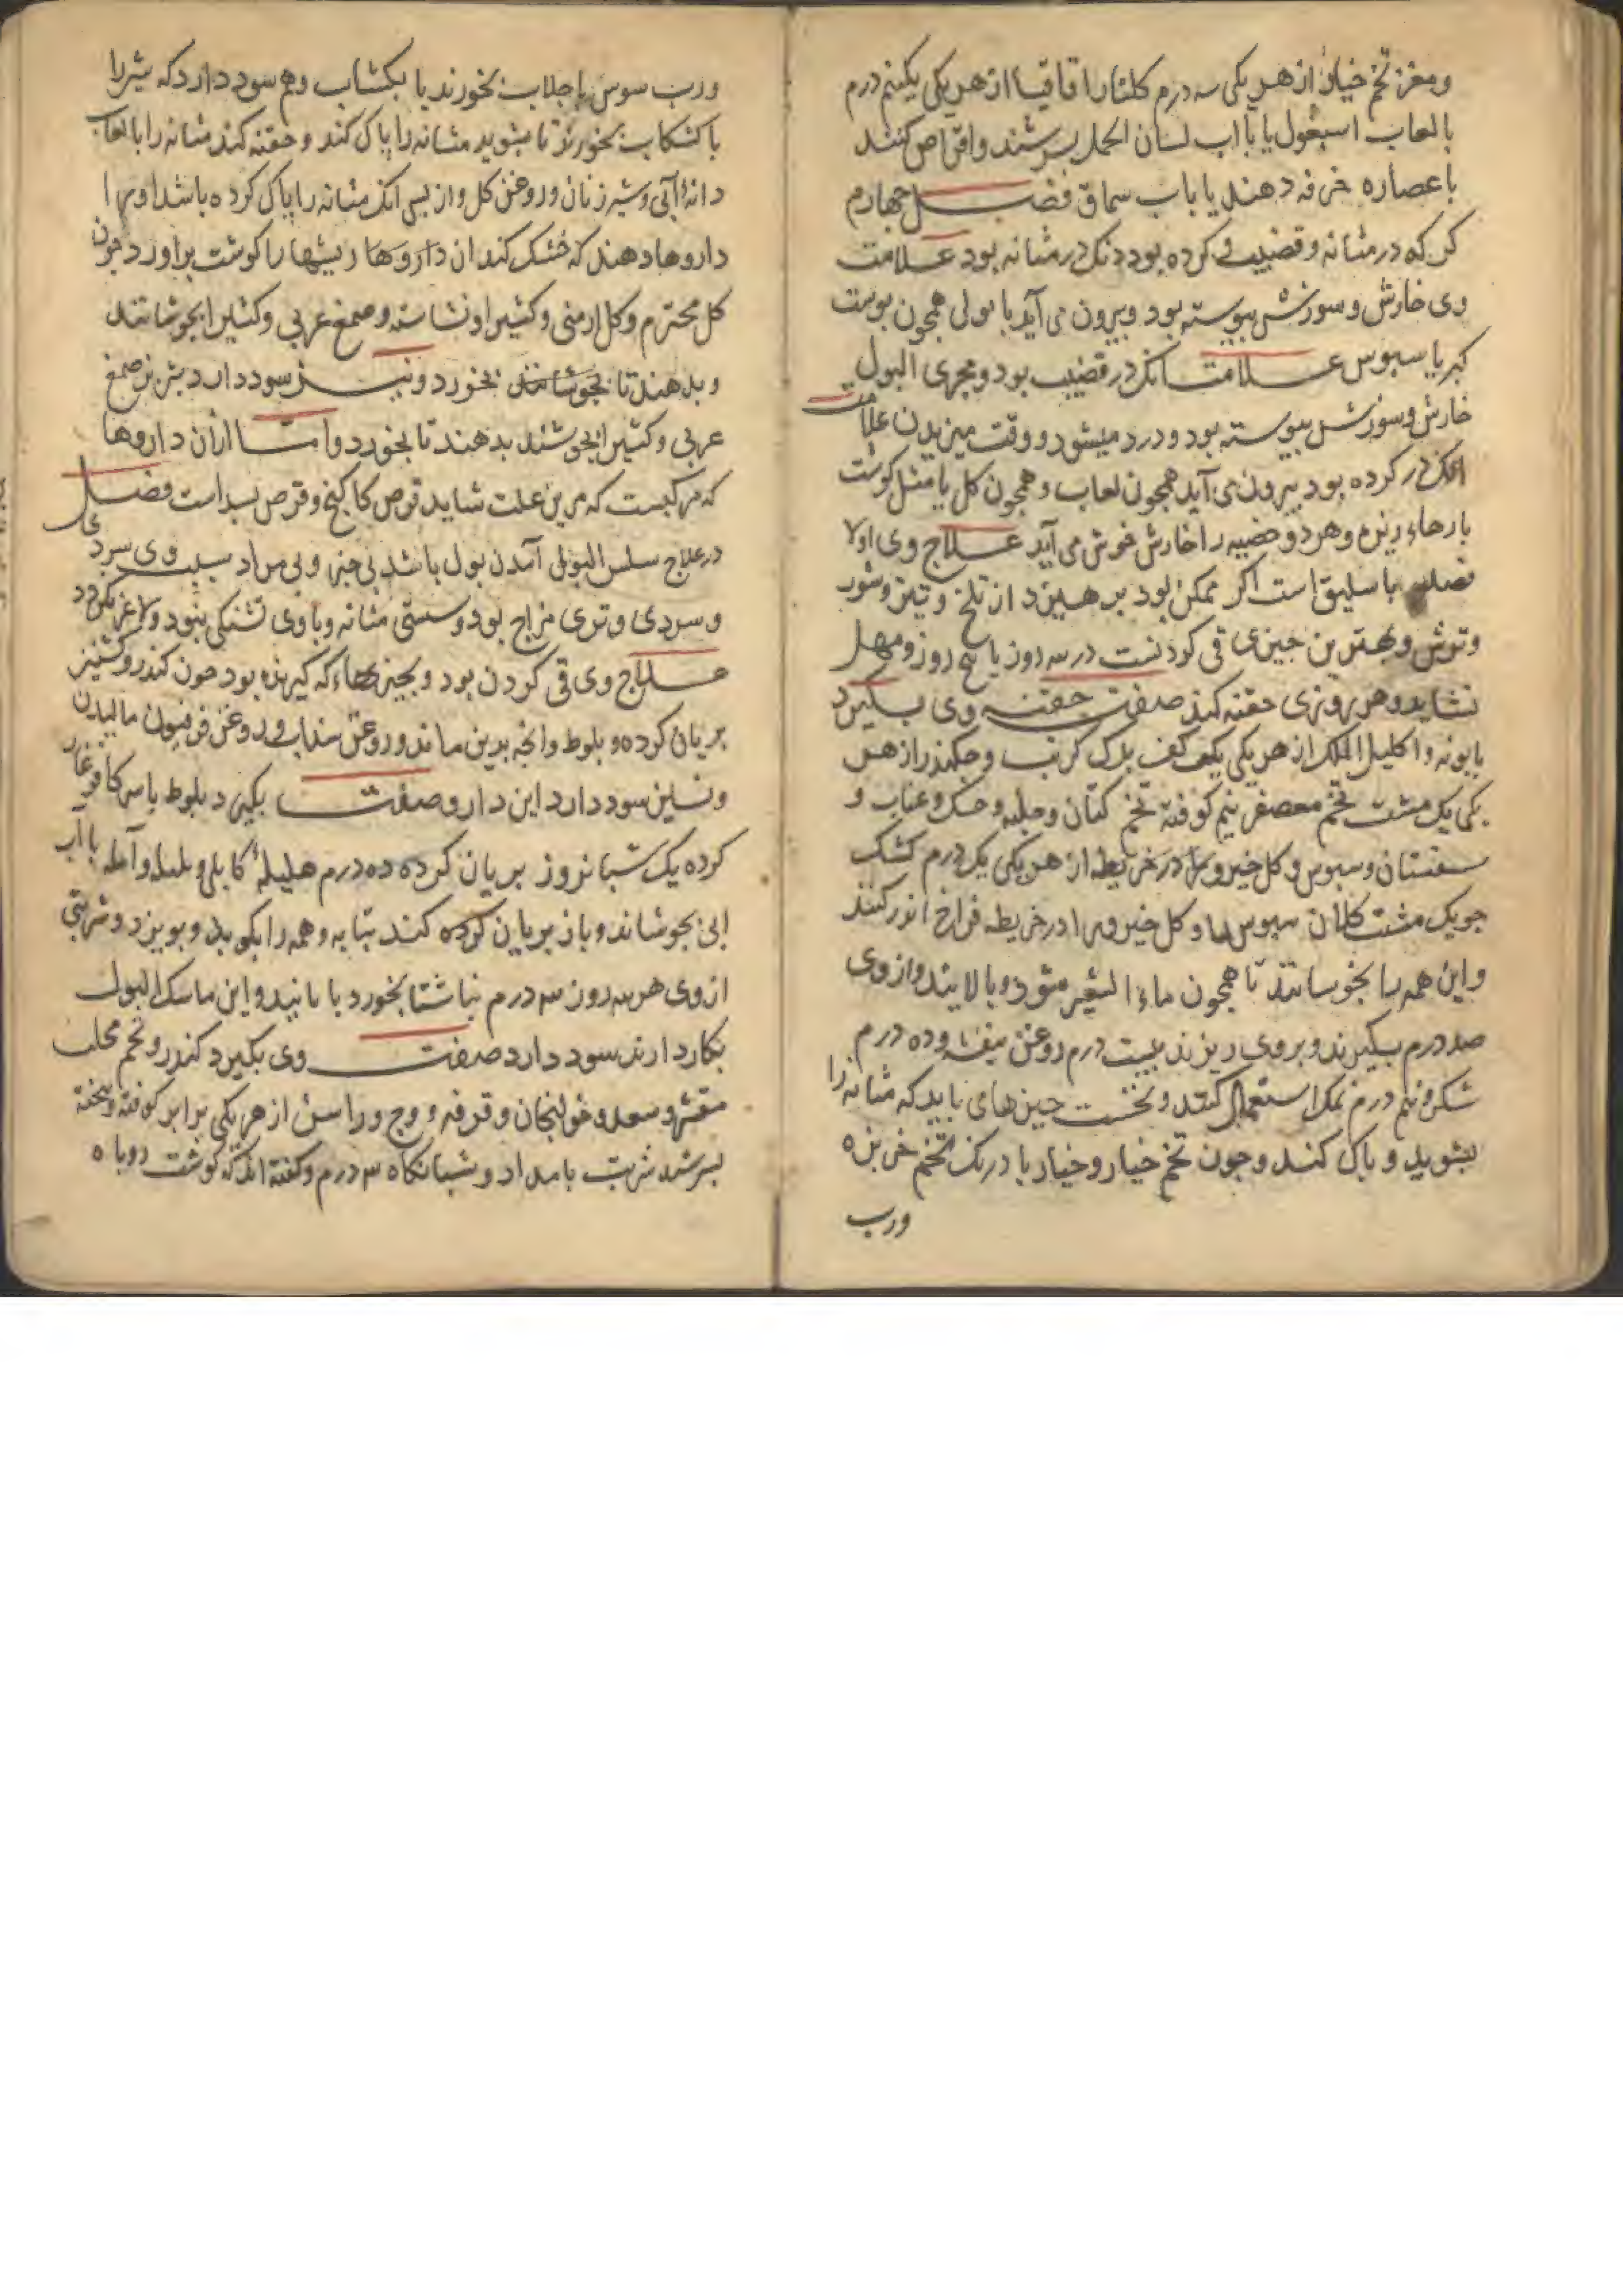 ومغز تخم خیار از هر یکی سه درم کلنار اقاقیا از هر یکی یکنیم درم
بالعاب اسبغول یا بااب لسان الحمل بسرشند واقراص کنند
باعصاره خرفه دهند یا باب سماق فصل چهارم
کر که در مثانه وقضیب کرده بود انک در مثانه بود علامت
وی خارش وسوزش بیوسته بود وبیرون می آید با بولی همچون بوست
کبر یا سبوس علامت انک در قضیب بود ومجری البول
خارش وسوزش بیوسته بود ودرد میشود و وقت میزیدن علامت
انک در کرده بود بیرون می آید همجون لعاب وهمجون کل یا مثل کوشت
بارهاء ریزه وهر دو خصیه را خارش خوش می آید علاج وی اولا
فصد باسلیق است اکر ممکن بود برهیزد از تلخ وتیز وشور
وترش وبهترین جیزی قی کردنست در سه روز یا پنج روز ومسهل
نشاید وهر روزی حقنه کند صفت حقنه وی بکیرد
بابونه واکلیل الملک از هر یکی یکف کف برک کرنب وجکندر از هر
یکی یک مشت تخم معصفر نیم کوفته تخم کتان وحلبه وحسک وعناب و
سفستان وسبوس وکل خیرو را در خریطه از هر یکی یک درم کشک
جو یک مشت کلان سبوس را وکل خیرو را در خریطه فراخ اندر کنند
واین همه را بخوسانند تا همجون ماء الشعیر شود وبالایند واز وی
صد درم بکیرند وبر وی ریزند بیست درم روغن بنفشه وده درم
شکر ونیم درم نمک استعمال کنند ونخست جیزهای باید که مثانه را
بشوید و باک کند وجون تخم خیار وخیار بادرنک تخم خربزه
ورب
ورب سوس باجلاب بخورند یا بکشاب وهم سود دارد که شیر را
باکشکاب بخورند تا بشوید مثانه را باک کند وحقنه کند مثانه را بالعاب
دانه آبی وشیر زنان وروغن کل واز بس انک مثانه را باک کرده باشد او را
داروها دهند که خشک کند ان داروها ریشها را کوشت براورد جون
کل مختوم وکل ارمنی وکثیرا ونشاسته وصمغ عربی وکثیرا بجوشانند
وبدهند تا بجوشانند بخورد ونیز سود دارد شیر بز صمغ
عربی وکثیرا بجوشند بدهند تا بخورد واما از آن داروها
که مرکبست که مرین علت شاید قرص کاکنج وقرص بسد است فصل
در علاج سلس البول آمدن بول باشد بی خبر وبی مراد سبب وی سردی
و سردی وتری مزاج بود وسستی مثانه وباوی تشنکی نبود ولاغر نکردد
علاج وی قی کردن بود وبجیزهاء که کیرنده بود جون کندر وکشنیز
بریان کرده و بلوط وانجه بدین ماند وروغن سداب وروغن فرفیون مالیدن
ونسرین سود دارد این دارو صفت بکیرد بلوط باسرکا فرغار
کرده یک شبانروز بریان کرده ده درم هلیله کابلی وبلیله وآمله باآب
ابی بجوشاند وباز بریان کرده کند بتابه وهمه را بکوبد وببیزد وشربتی
از وی هر سه روز سه درم ناشتا بخورد بانانید واین ماسک البول
بکار دارند سود دارد صفت وی بکیرد کندر وتخم محلب
مقشر وسعد وخولنجان وقرفه و وج وراسن از هر یکی برابر کوفته وبیخته
بسرشد شربت بامداد وشبانکاه ۳ درم وکفته اند که کوشت روباه